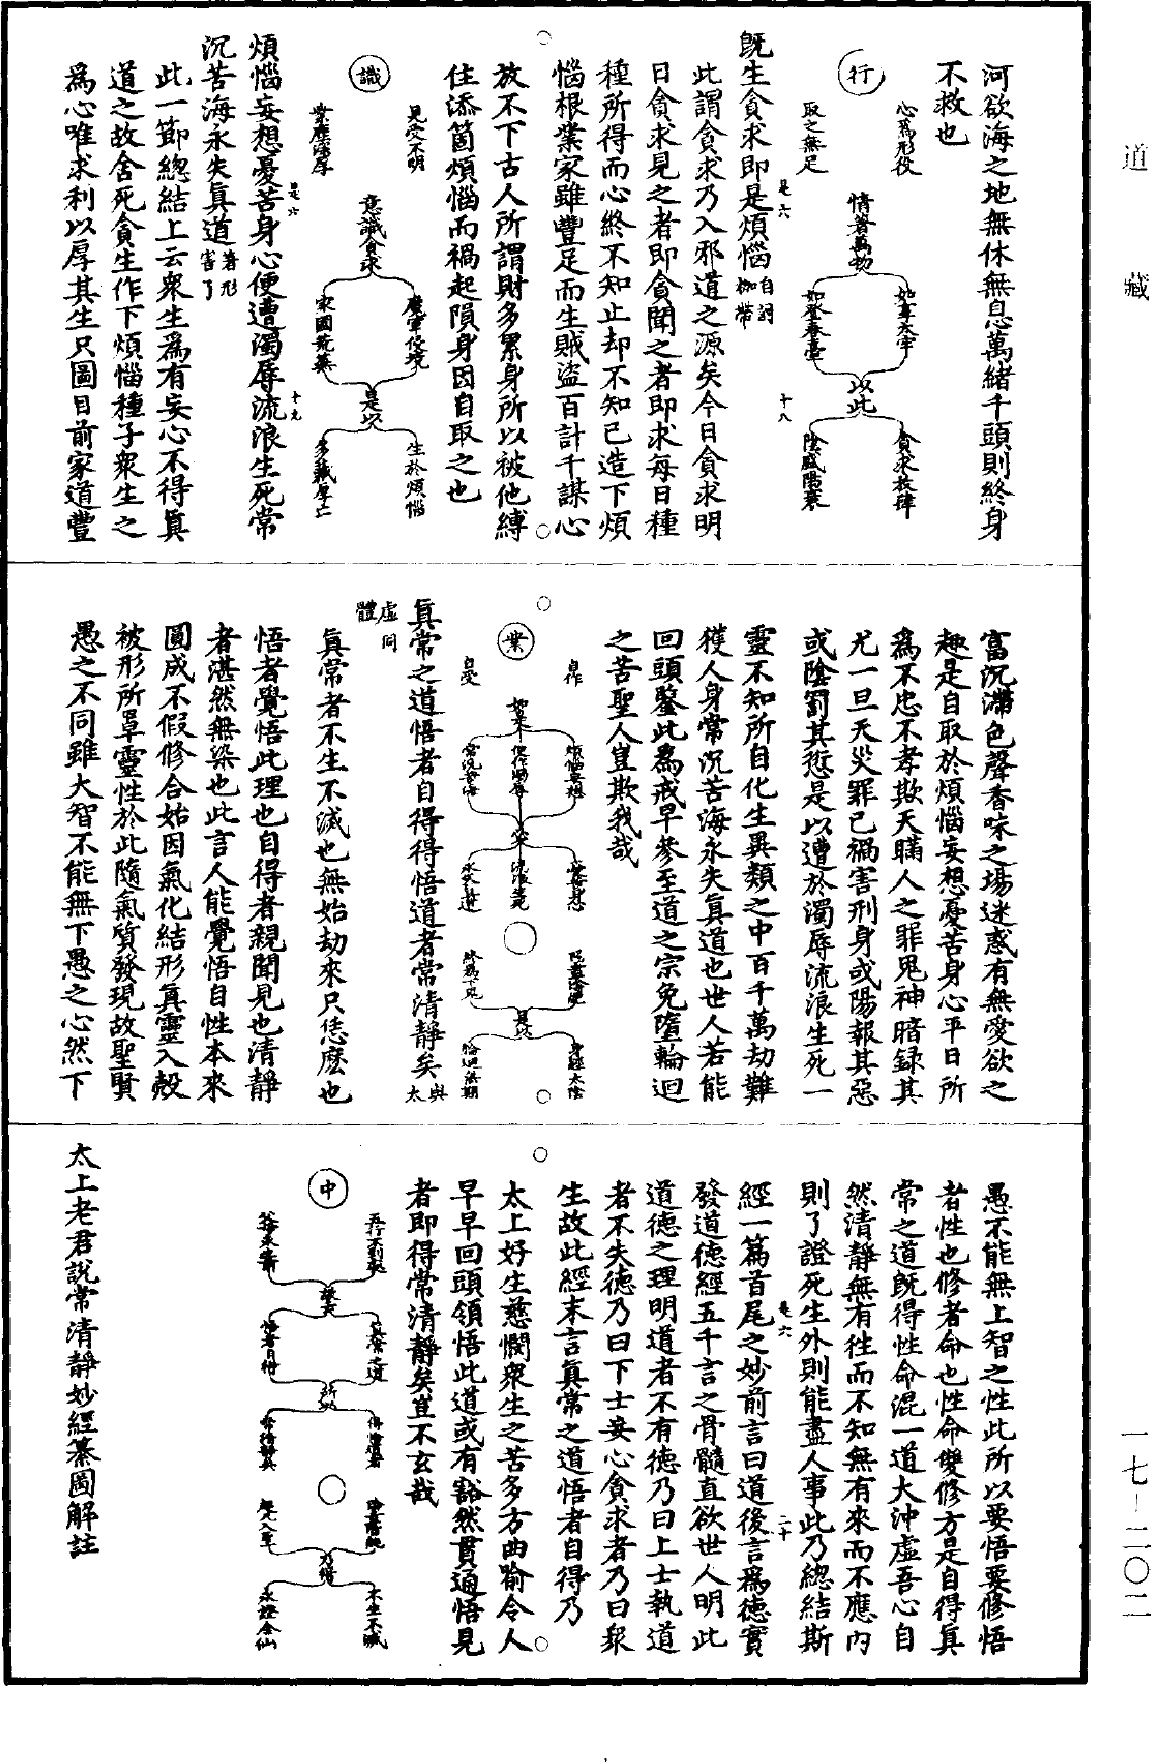 道藏
河欲海之地無休無息萬緒千頭則終身
不救也
行
心為形役
取之無足
情著萬物
如享太牢
如登春臺
以此
貪求放肆
陰盛陽衰
既生貪求即是煩惱自詞枷帶
是六
十八
此謂貪求乃入邪道之源矣今日貪求明
日貪求見之者即貪聞之者即求每日種
種所得而心終不知止却不知已造下煩
惱根業家雖豐足而生賊盜百計千謀心
放不下古人所謂財多累身所以被他縛
住添箇煩惱而禍起隕身因自取之也
識
見受不明
業塵深厚
意識貪求
魔軍侵境
家國荒蕪
是以
生於煩惱
多藏厚亡
煩惱妄想憂苦身心便遭濁辱流浪生死常
是六
十九
沉苦海永失真道著形害了
此一節總結上云衆生爲有妄心不得真
道之故舍死貪生作下煩惱種子衆生之
爲心唯求利以厚其生只圖目前家道豐
富沉滯色聲香味之場迷惑有無愛欲之
趣是自取於煩惱妄想憂苦身心平日所
爲不忠不孝欺天瞞人之罪鬼神暗録其
尤一旦天災罪已禍害刑身或陽報其惡
或陰罰其愆是以遭於濁辱流浪生死一
靈不知所自化生異類之中百千萬劫難
獲人身常沉苦海永失真道也世人若能
回頭鑒此爲戒早參至道之宗免墮輪迴
之苦聖人豈欺我哉
業
自作
自受
煩惱妄想
便遭濁辱
常沉苦海
流浪生死
永失真道
是以
真常之道悟者自得得悟道者常清靜矣與太
虛同體
真常者不生不滅也無始劫來只恁麼也
悟者覺悟此理也自得者親聞見也清靜
者湛然無染也此言人能覺悟自性本來
圓成不假修合始因氣化結形真靈入殼
被形所罩靈性於此隨氣質發現故聖賢
愚之不同雖大智不能無下愚之心然下
愚不能無上智之性此所以要悟要修悟
者性也修者命也性命雙修方是自得真
常之道既得性命混一道大沖虛吾心自
然清靜無有徃而不知無有來而不應内
則了證死生外則能盡人事此乃總結斯
經一篇首尾之妙前言曰道後言爲德實
是六
二十
發道德經五千言之骨髓直欲世人明此
道德之理明道者不有德乃曰上士執道
者不失德乃曰下士妄心貪求者乃曰衆
生故此經末言真常之道悟者自得乃
太上好生慈憫衆生之苦多方曲喻令人
早早回頭領悟此道或有豁然貫通悟見
者即得常清靜矣豈不玄哉
中
真常之道
悟者自得
所以
得悟道者
常清靜矣
超凡入聖
乃得
不生不滅
永證金仙
太上老君說常清靜妙經纂圖解註
一七–二〇二